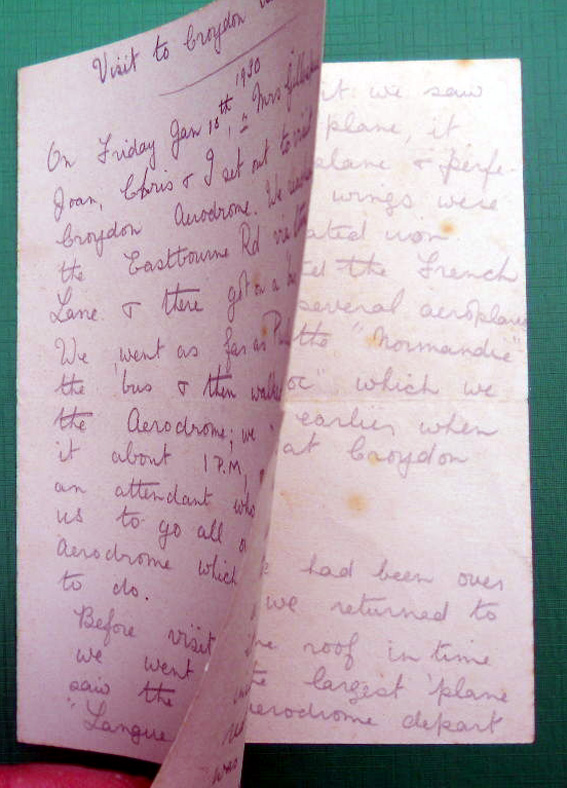 Visit to Croydon
1930
On Friday Jan 18th, Mrs
Joan, Chris & I set out to visit
Croydon Aerodrome. We
the Eastbourne Rd via the
Lane & there got on a
We went as far as
the 'bus & then
the Aerodrome; we
it about 1 P.M.
an attendant who
us to go all
Aerodrome which
to do.
Before visit
we went
saw the
"Langue
we saw
plane, it
plane & perfe-
wings were
upon
the French
several aeroplanes
the "Normandie"
oc", which we
earlier when
at Croydon
had been over
we returned to
the roof in time
largest 'plane
aerodrome depart
was